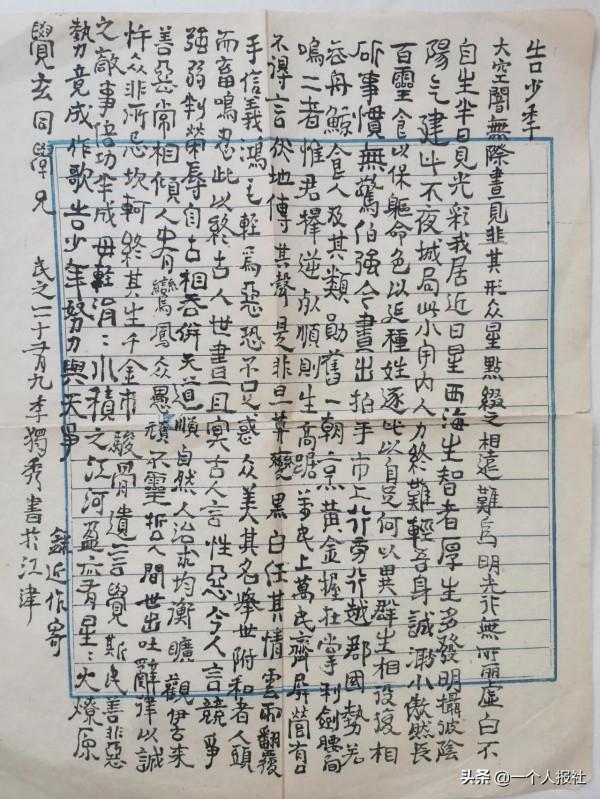 告少年
大空闇無際晝見非其形众星點綴之相遠難爲明光行無所麗虛白不
自生半日見光彩我居近日星西海生智者厚生多發明攝彼陰
陽气建此不夜城局此小宇内人力終難輕吾身誠渺小傲然長
百靈食以保軀命色以延種姓逐此以自足何以異群生相役復相
斫事慣無驚伯强今晝出拍手市上行旁行越郡國勢若
吞舟鯨食人及其類勛舊一朝烹黄金握在掌利劍腰間
鳴二者惟君擇逆死順則生高踞萬民上萬民齊屏營有口
不得言伏地傳其聲是非旦莫變黑白任其情雲雨翻覆
手信義鴻毛輕爲惡恐不足惑众美其名舉世附和者人頭
而畜鳴忍此以終古人世晝且冥古人言性惡今人言競爭
强弱判榮辱自古相吞併天道順自然人治求均衡曠觀伊古來
善惡常相傾人中有鸞鳳众愚頑不靈哲人間世出吐辭律以誠
忤众非所忌坎軻終其生千金市駿骨遺言覺斯民善非惡
之敵事倍功半成毋輕涓〻水積之江河盈亦有星〻火燎原
勢竟成作歌告少年努力與天爭
錄近作寄
覺玄同學兄
民之二十有九年獨秀書於江津
头条 @一个人报社